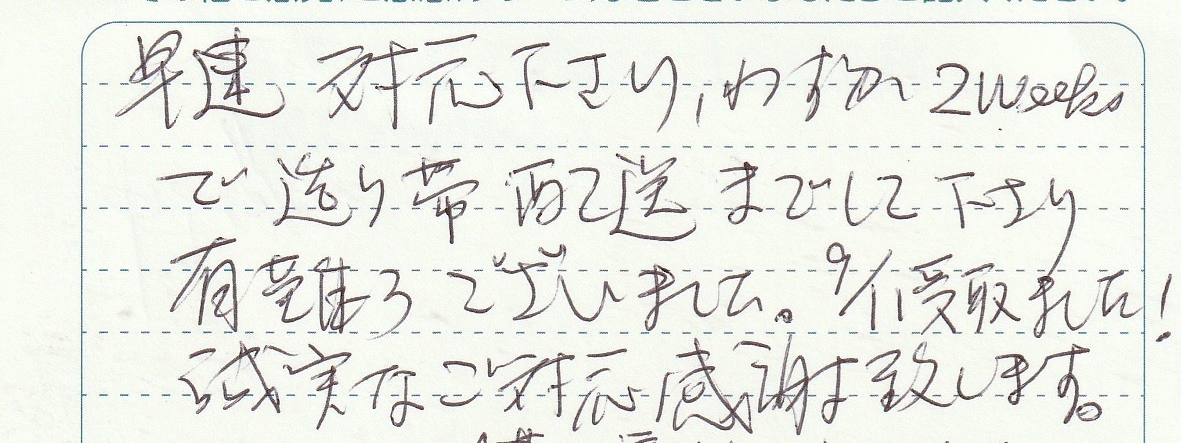 早速 対応下さり,わずか2weeks
で造り帯配送までして下さり
有難うございました。9/1受取ました!
誠実なご対応感謝致します。